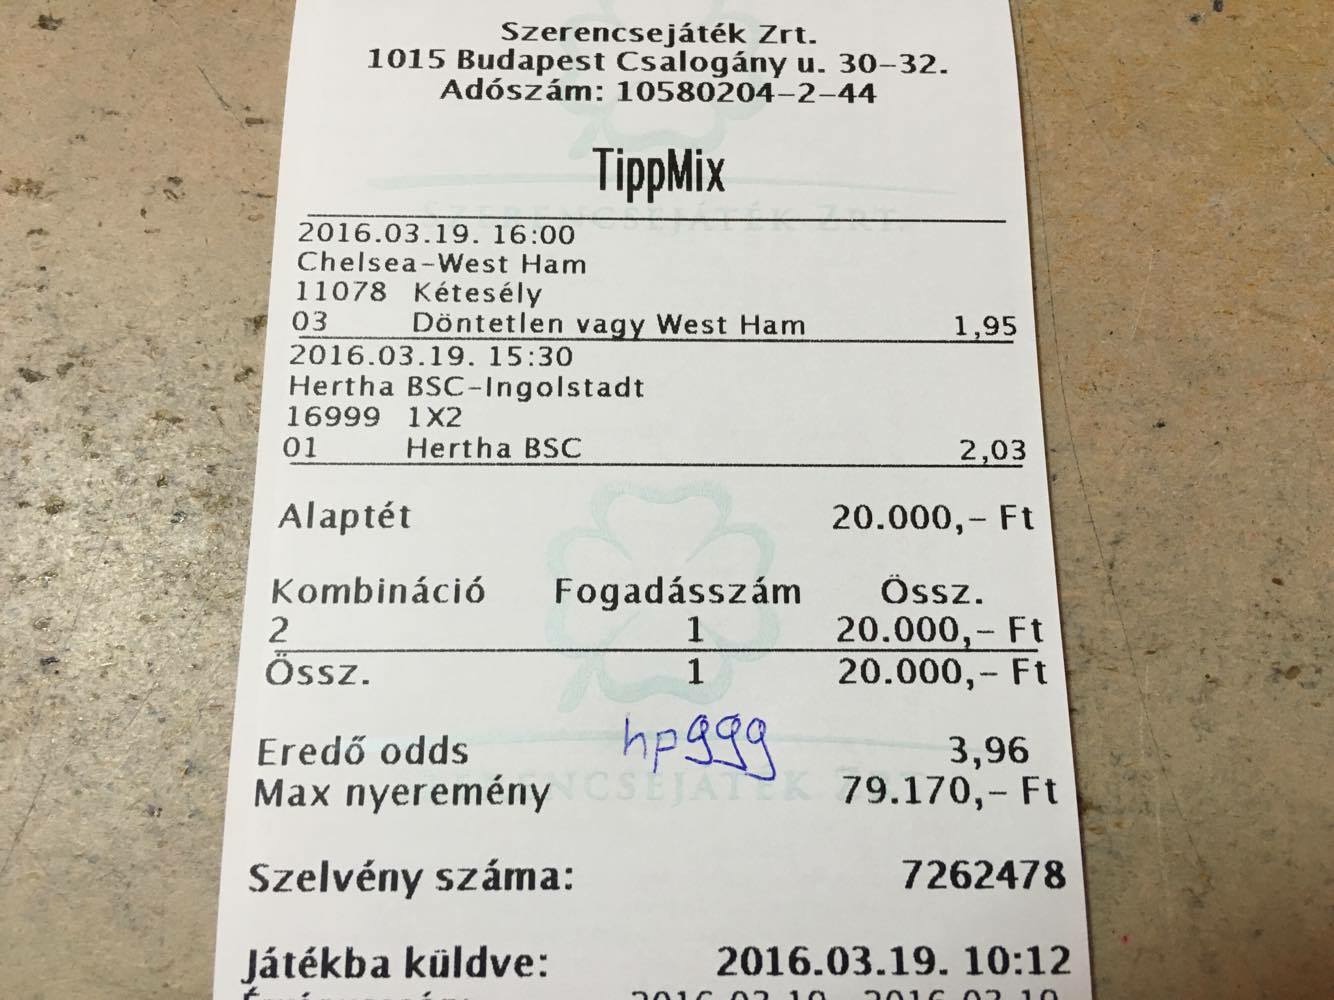 Szerencsejáték Zrt.
1015 Budapest Csalogány u. 30-32.
Adószám: 10580204-2-44
TippMix
SZERENCSEJÁTÉK ZRT.
2016.03.19. 16:00
Chelsea-West Ham
11078 Kétesély
03 Döntetlen vagy West Ham 1,95
2016.03.19. 15:30
Hertha BSC-Ingolstadt
16999 1X2
01 Hertha BSC 2,03
Alaptét 20.000,- Ft
Kombináció Fogadásszám Össz.
2 1 20.000,- Ft
Össz. 1 20.000,- Ft
hpggg
Eredő odds 3,96
Max nyeremény 79.170,- Ft
Szelvény száma: 7262478
Játékba küldve: 2016.03.19. 10:12